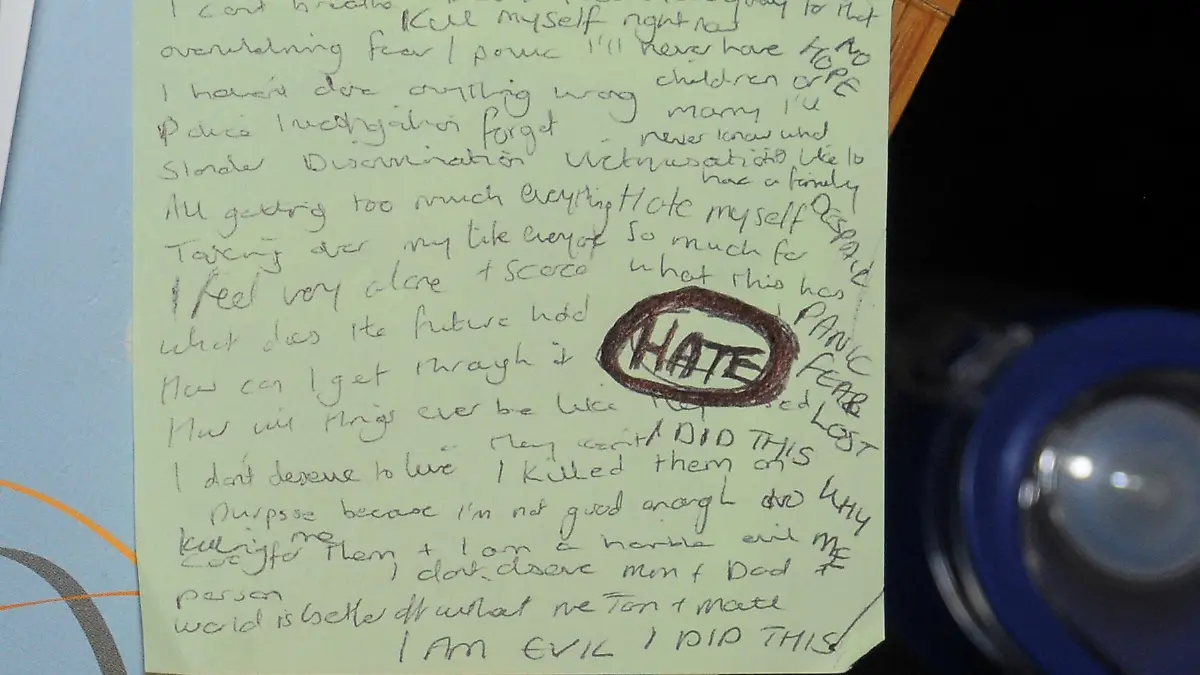 I cant breathe
Kill myself right now
overwhelming fear / panic I'll never have NO HOPE
I haven't done anything wrong children or
Police Investigation forget marry I'll
never know what
Slander Discrimination Victimisation its like to
have a family
All getting too much everything Hate myself DESPAIR
Taking over my life everyone so much for
I feel very alone + scared what this has
what does the future hold PANIC
How can I get through it HATE FEAR
How will things ever be like they used LOST
they can't I DID THIS
I don't deserve to live I killed them on
purpose because I'm not good enough WHY
killing me ME
caring for them + I am a horrible evil
I dont deserve mum + Dad +
person
world is better off without me Tom + Matt
I AM EVIL I DID THIS